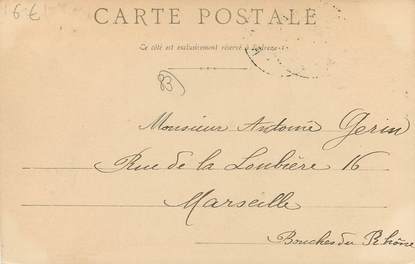 6 €
CARTE POSTALE
Ce côté est exclusivement réservé à l'adresse
83
Monsieur Antoine Gerin
Rue de la Loubière 16
Marseille
Bouches du Rhône